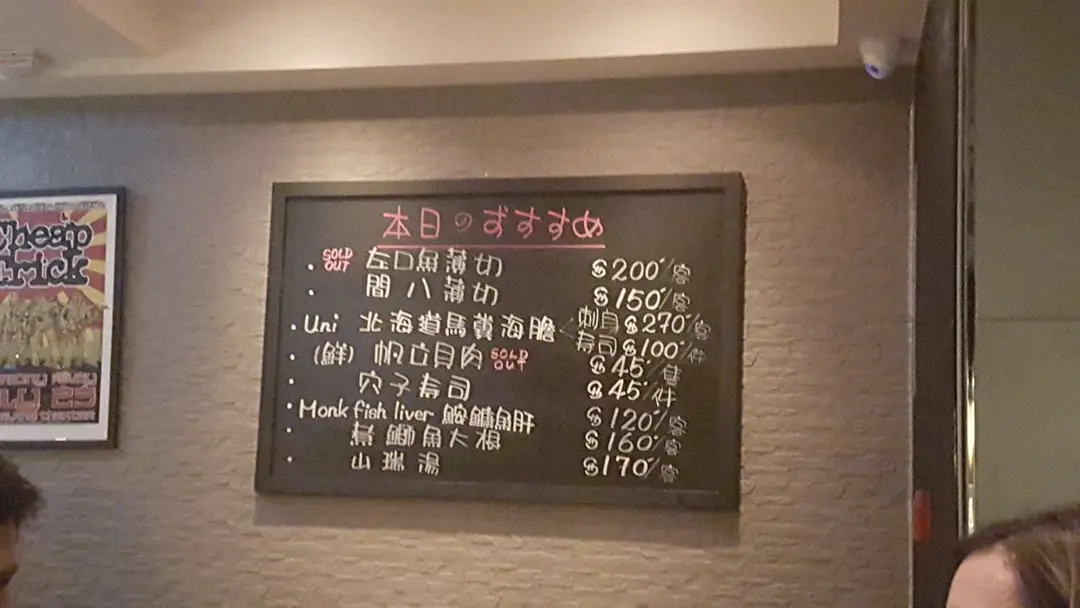 Cheap
Trick
本日のおすすめ
· SOLD OUT 左口魚薄切 $200/客
· 間八薄切 $150/客
· Uni 北海道馬糞海膽 刺身 $270/客
寿司 $100/件
· (鮮) 帆立貝肉 SOLD OUT $45/件
· 穴子寿司 $45/件
· Monk fish liver 鮟鱇魚肝 $120/客
· 煮鰤魚大根 $160/客
· 山瑞湯 $170/客